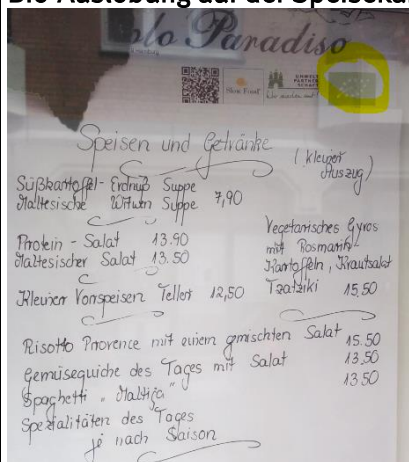 Die Auslobung auf der Speiseka
olo Paradiso
Slow Food
UMWELT
PARTNER
Speisen und Getränke
(kleiner
Auszug)
Süßkartoffel- Erdnuß Suppe
Maltesische Witwen Suppe 7,90
Protein - Salat 13.90
Maltesischer Salat 13.50
Kleiner Vorspeisen Teller 12,50
Vegetarisches Gyros
mit Rosmarin-
Kartoffeln, Krautsalat
Tzatziki 15.50
Risotto Provence mit einem gemischten Salat 15.50
Gemüsequiche des Tages mit Salat 13,50
Spaghetti " Maltija" 13.50
Spezialitäten des Tages
je nach Saison